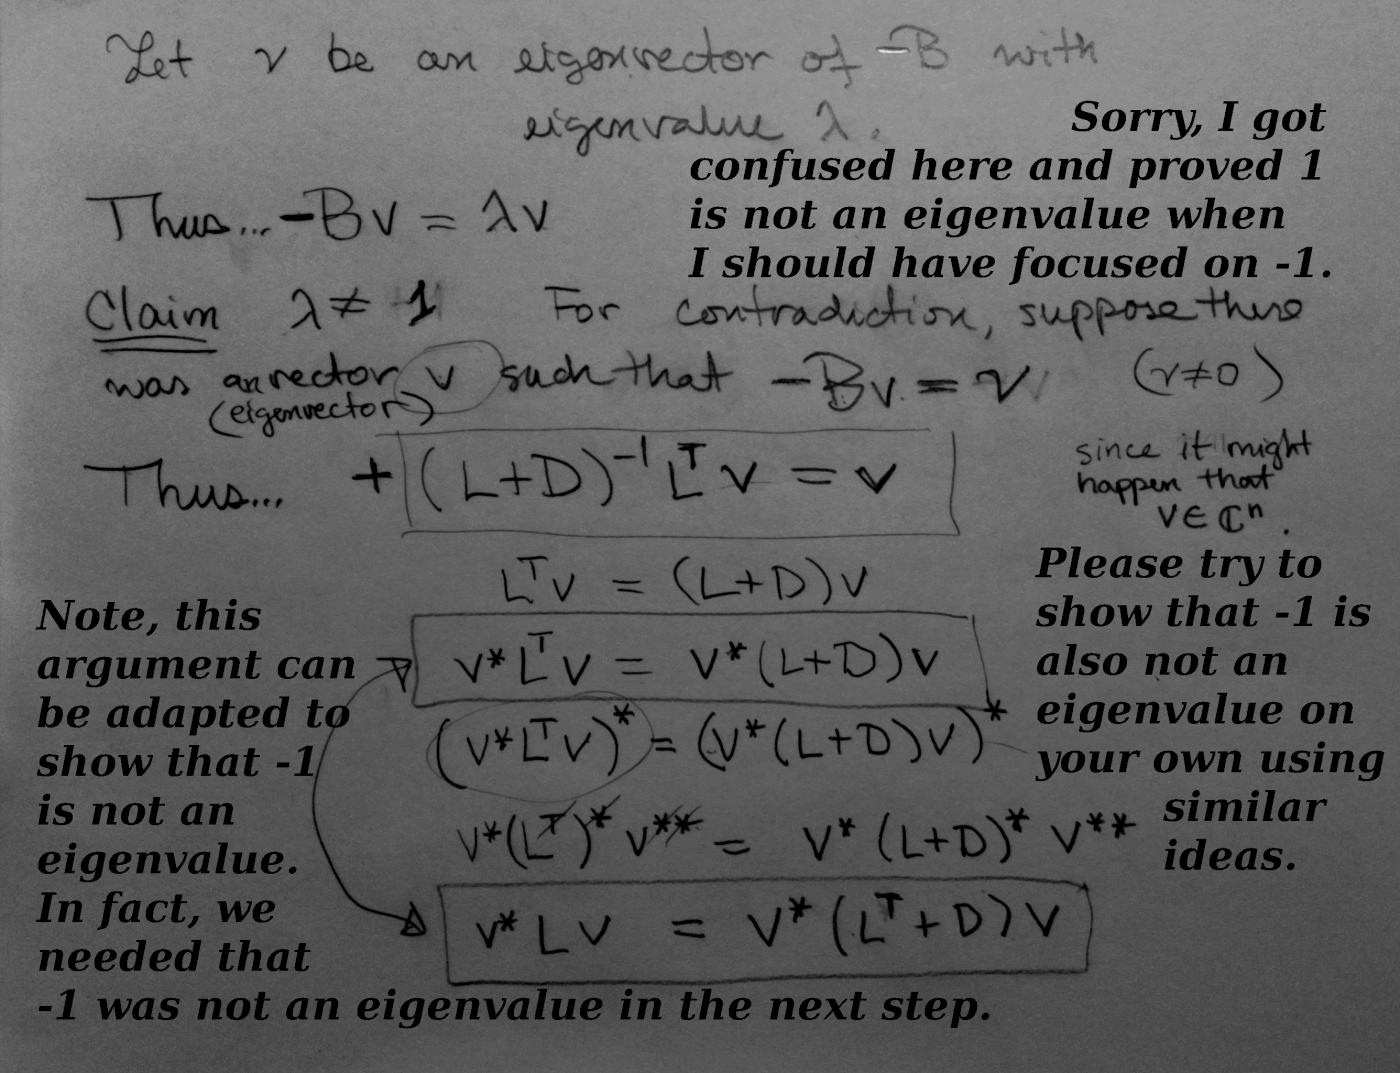 Let v be an eigenvector of -B with
eigenvalue λ.
Sorry, I got
confused here and proved 1
is not an eigenvalue when
I should have focused on -1.
Thus... -Bv = λv
Claim λ ≠ 1 For contradiction, suppose there
was an vector v such that -Bv = v (v≠0)
(eigenvector)
Thus... +(L+D)⁻¹ Lᵀ v = v
since it might
happen that
v ∈ ℂⁿ.
Lᵀv = (L+D)v
v*Lᵀv = v*(L+D)v
(v*Lᵀv)* = (v*(L+D)v)*
v*(Lᵀ)* v** = v* (L+D)* v**
v* L v = v* (Lᵀ+D) v
Please try to
show that -1 is
also not an
eigenvalue on
your own using
similar
ideas.
Note, this
argument can
be adapted to
show that -1
is not an
eigenvalue.
In fact, we
needed that
-1 was not an eigenvalue in the next step.